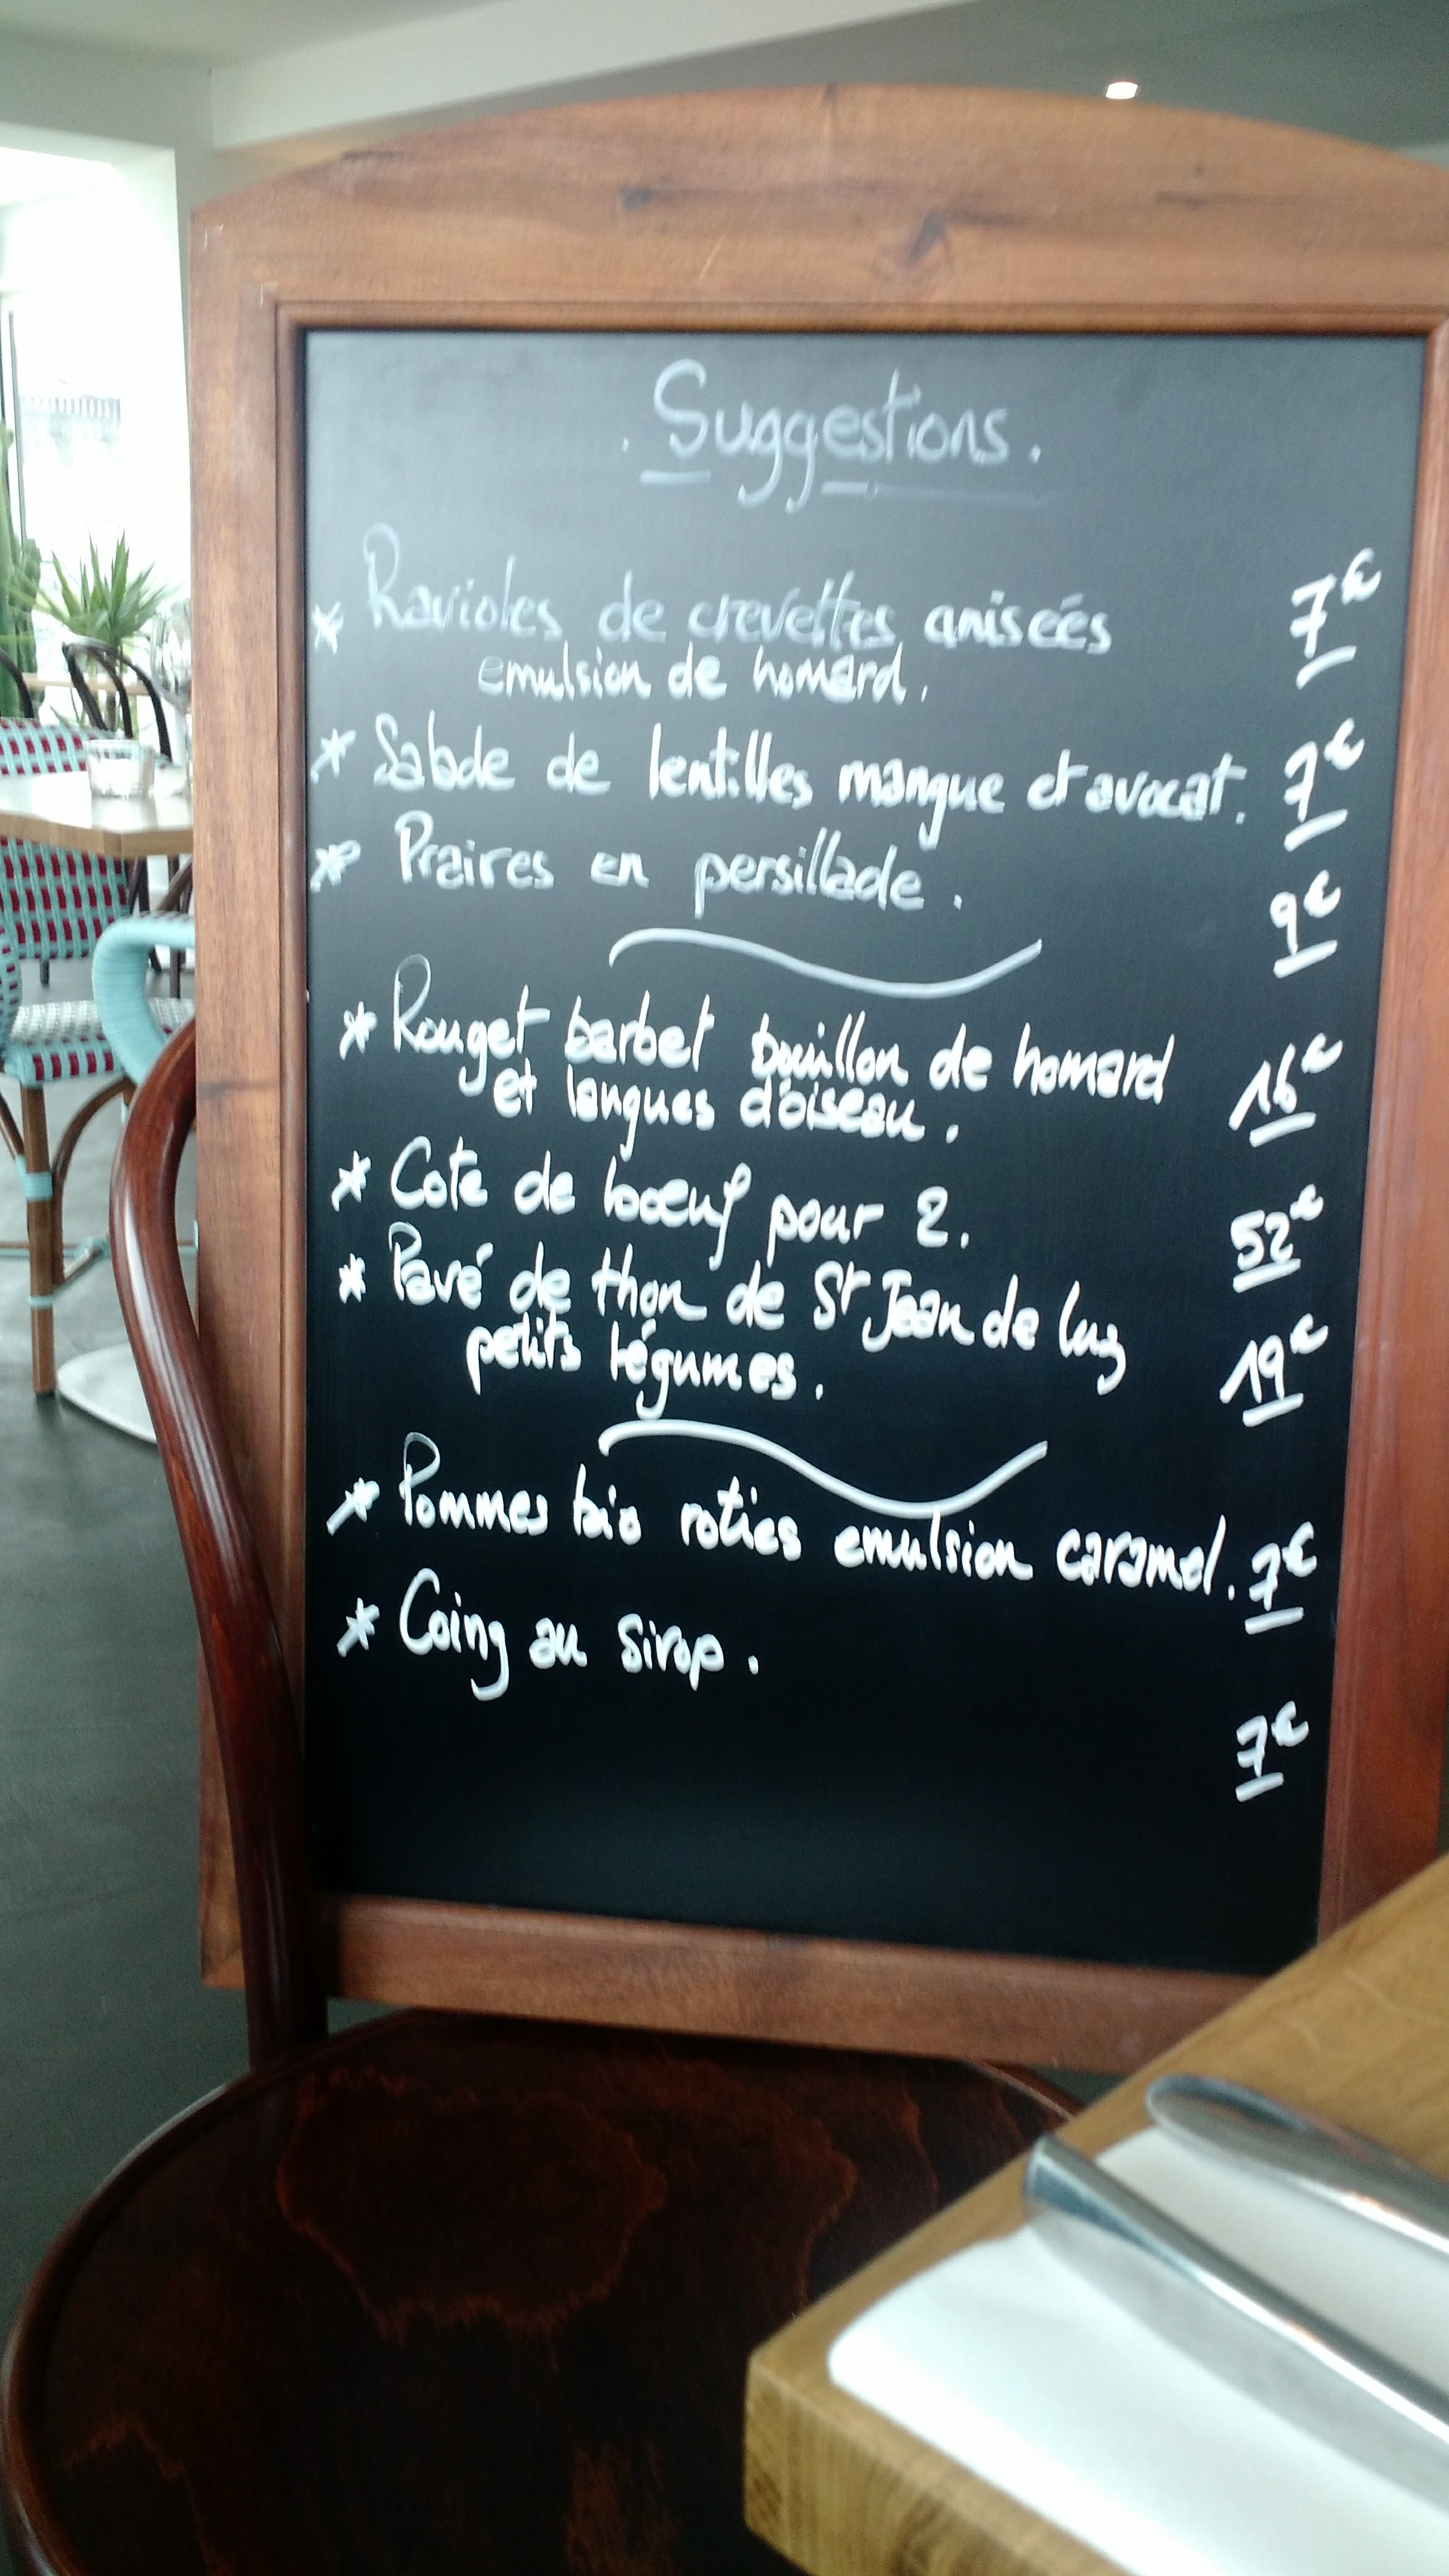 . Suggestions .
* Ravioles de crevettes aniseés 7€
emulsion de homard.
* Salade de lentilles mangue et avocat. 7€
* Praires en persillade. 9€
* Rouget barbet bouillon de homard 16€
et langues d'oiseau.
* Cote de boeuf pour 2. 52€
* Pavé de thon de St Jean de luz 19€
petits légumes.
* Pommes bio roties emulsion caramel. 7€
* Coing au sirop.
7€